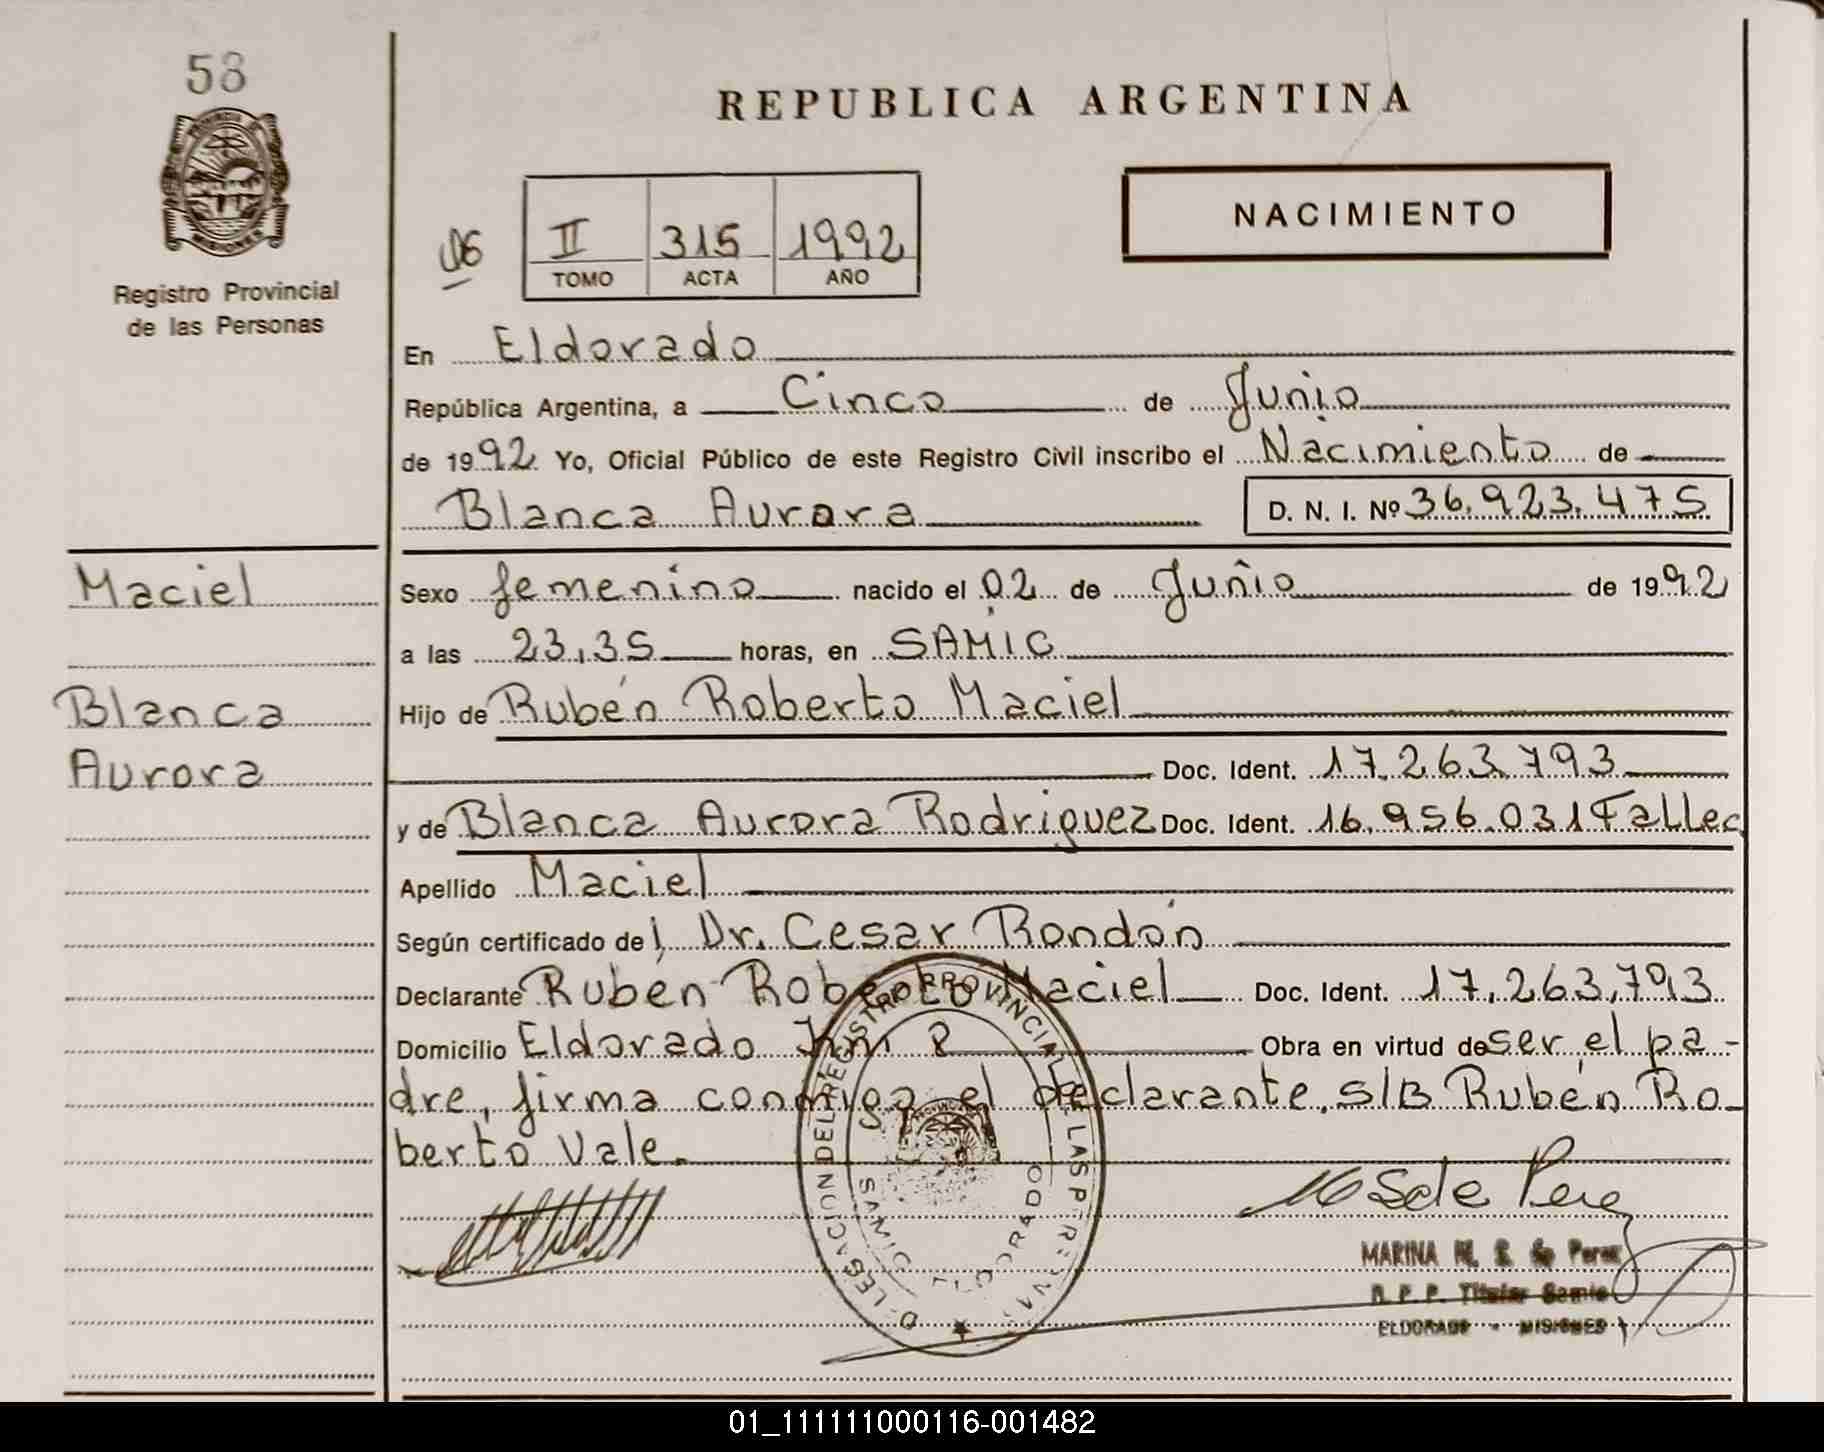 58
REPUBLICA ARGENTINA
PROVINCIA DE
MISIONES
NACIMIENTO
II 315 1992
TOMO ACTA AÑO
Registro Provincial
de las Personas
En Eldorado
República Argentina, a Cinco de Junio
de 1992 Yo, Oficial Público de este Registro Civil inscribo el Nacimiento de
Blanca Aurora D. N. I. Nº 36.923.475
Maciel
Blanca
Aurora
Sexo femenino nacido el 02 de Junio de 1992
a las 23,35 horas, en SAMIC
Hijo de Rubén Roberto Maciel
Doc. Ident. 17.263.793
y de Blanca Aurora Rodriguez Doc. Ident. 16.956.031 Fallec
Apellido Maciel
Según certificado de l Dr. Cesar Rondón
Declarante Rubén Roberto Maciel Doc. Ident. 17.263.793
Domicilio Eldorado Km. 2 Obra en virtud de ser el pa-
dre, firma conmigo el declarante. S/B Rubén Ro-
berto Vale.
DELEGACION DEL REGISTRO PROVINCIAL DE LAS PERSONAS
SAMIC ELDORADO
MARINA M. S. de Perez
D. P. P. Titular Samic
ELDORADO - MISIONES
01_111111000116-001482